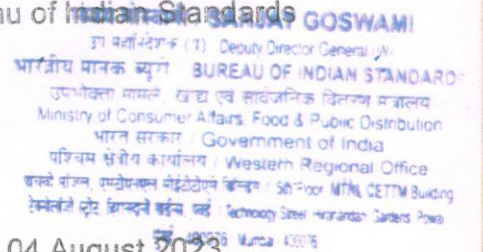 au of Indian Standards
SANJAY GOSWAMI
उप महानिदेशक (1) Deputy Director General
भारतीय मानक ब्यूरो BUREAU OF INDIAN STANDARDS
उपभोक्ता मामले, खाद्य एवं सार्वजनिक वितरण मंत्रालय
Ministry of Consumer Affairs, Food & Public Distribution
भारत सरकार / Government of India
पश्चिम क्षेत्रीय कार्यालय / Western Regional Office
5th Floor MTNL CETTM Building
Technology Street Hiranandani Gardens Powai
400076 Mumbai 400076
04 August 2023